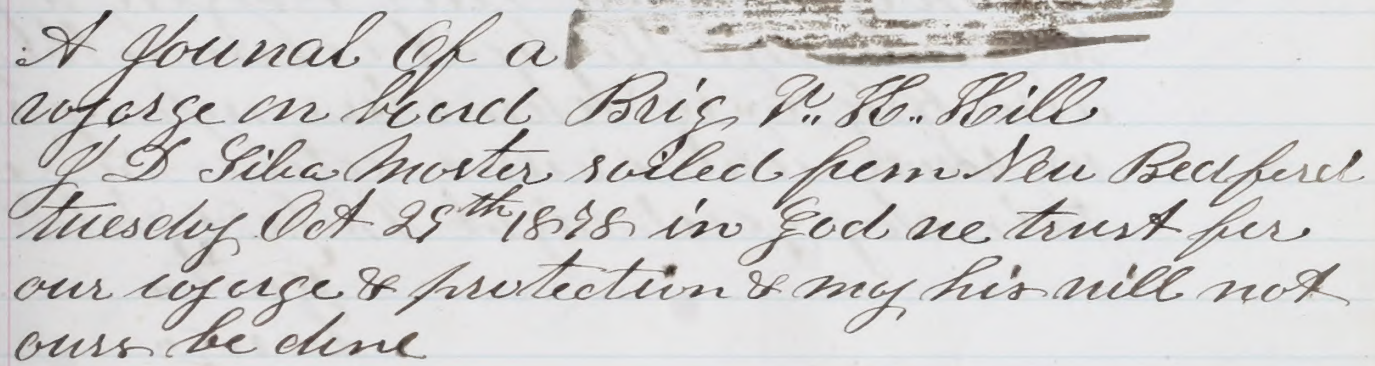 A Jounal Of a
voyarge on board Brig V. H. Hill
J D Silva Master sailed from New Bedford
tuesday Oct 29th 1878 in God we trust for
our voyarge & protection & may his will not
ours be done